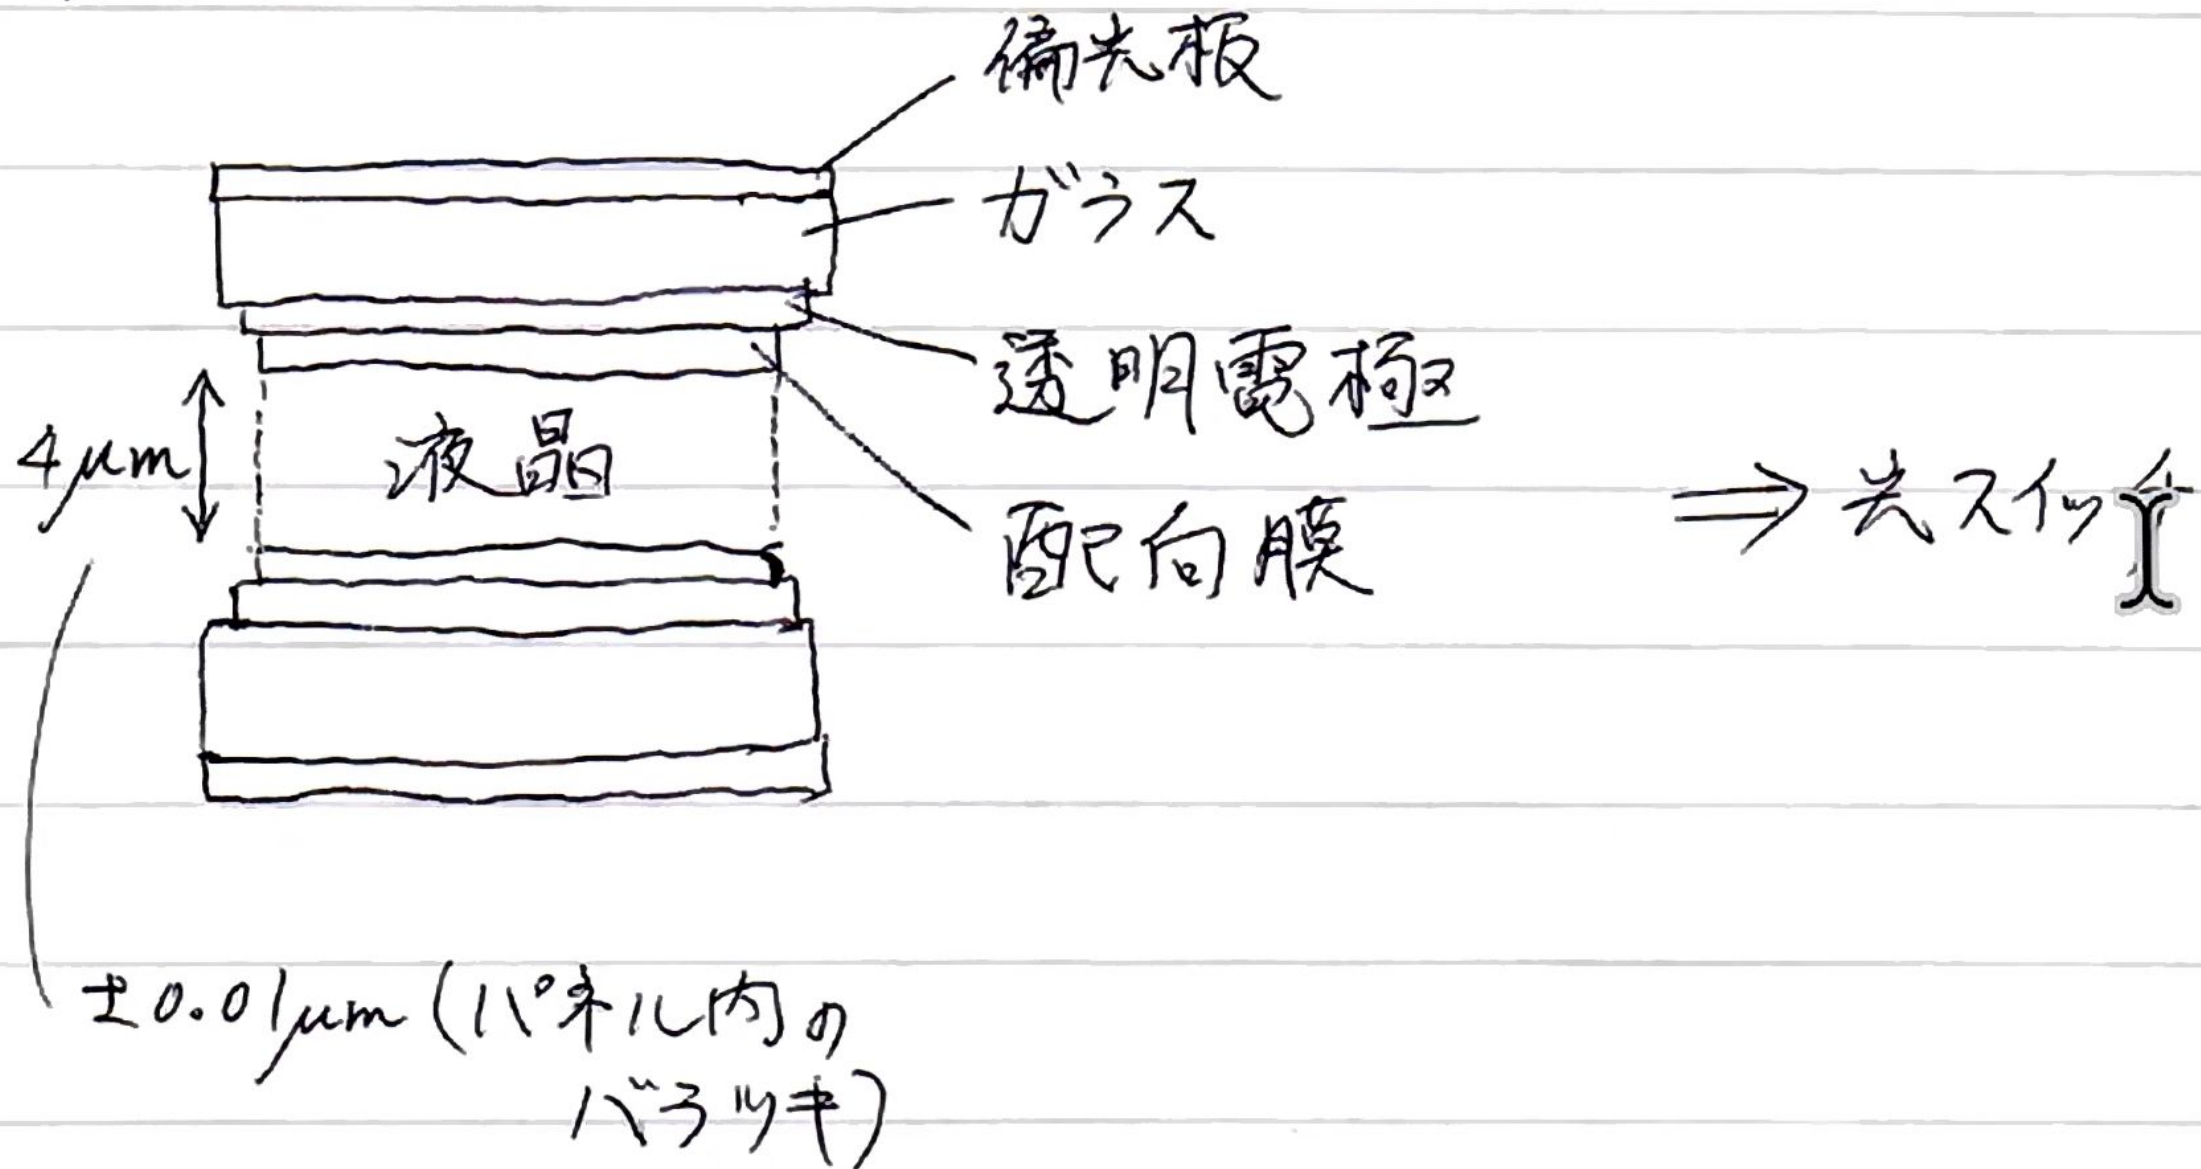 偏光板
ガラス
透明電極
4μm
液晶
⇒ 光スイッチ
配向膜
±0.01μm (パネル内の
バラツキ)